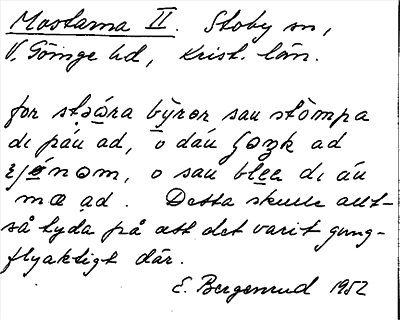 Mostarna II. Stoby sn,
V. Göinge hd, Krist. län.
for støära bỳrər sau stòmpa
dı páu ad, o dáu gəzk ad
ejénəm, o sau blee dı áu
mæ ad. Detta skulle allt-
så tyda på att det varit gung-
flyaktigt där.
E. Bergenrud 1952